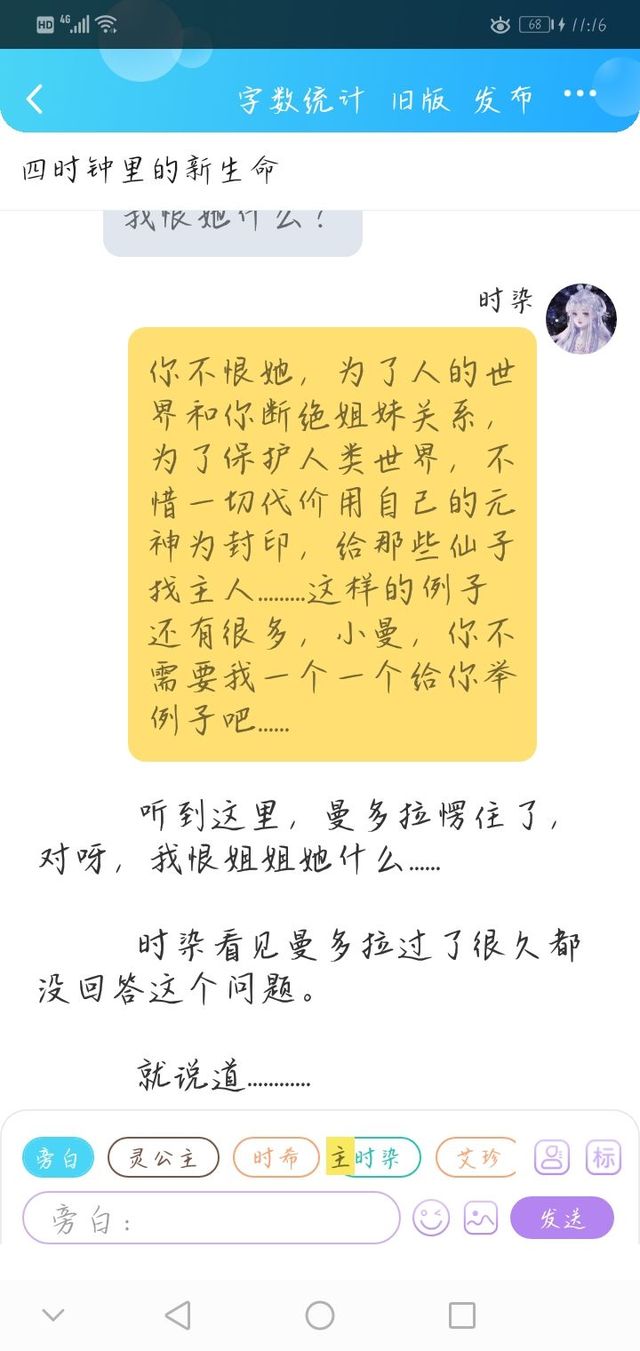 HD 4G 68 11:16
字数统计 旧版 发布 ···
四时钟里的新生命
我恨她什么？
时染
你不恨她，为了人的世
界和你断绝姐妹关系，
为了保护人类世界，不
惜一切代价用自己的元
神为封印，给那些仙子
找主人.........这样的例子
还有很多，小曼，你不
需要我一个一个给你举
例子吧......
听到这里，曼多拉愣住了，
对呀，我恨姐姐她什么......
时染看见曼多拉过了很久都
没回答这个问题。
就说道............
旁白 灵公主 时希 主 时染 艾珍 标
旁白： 发送